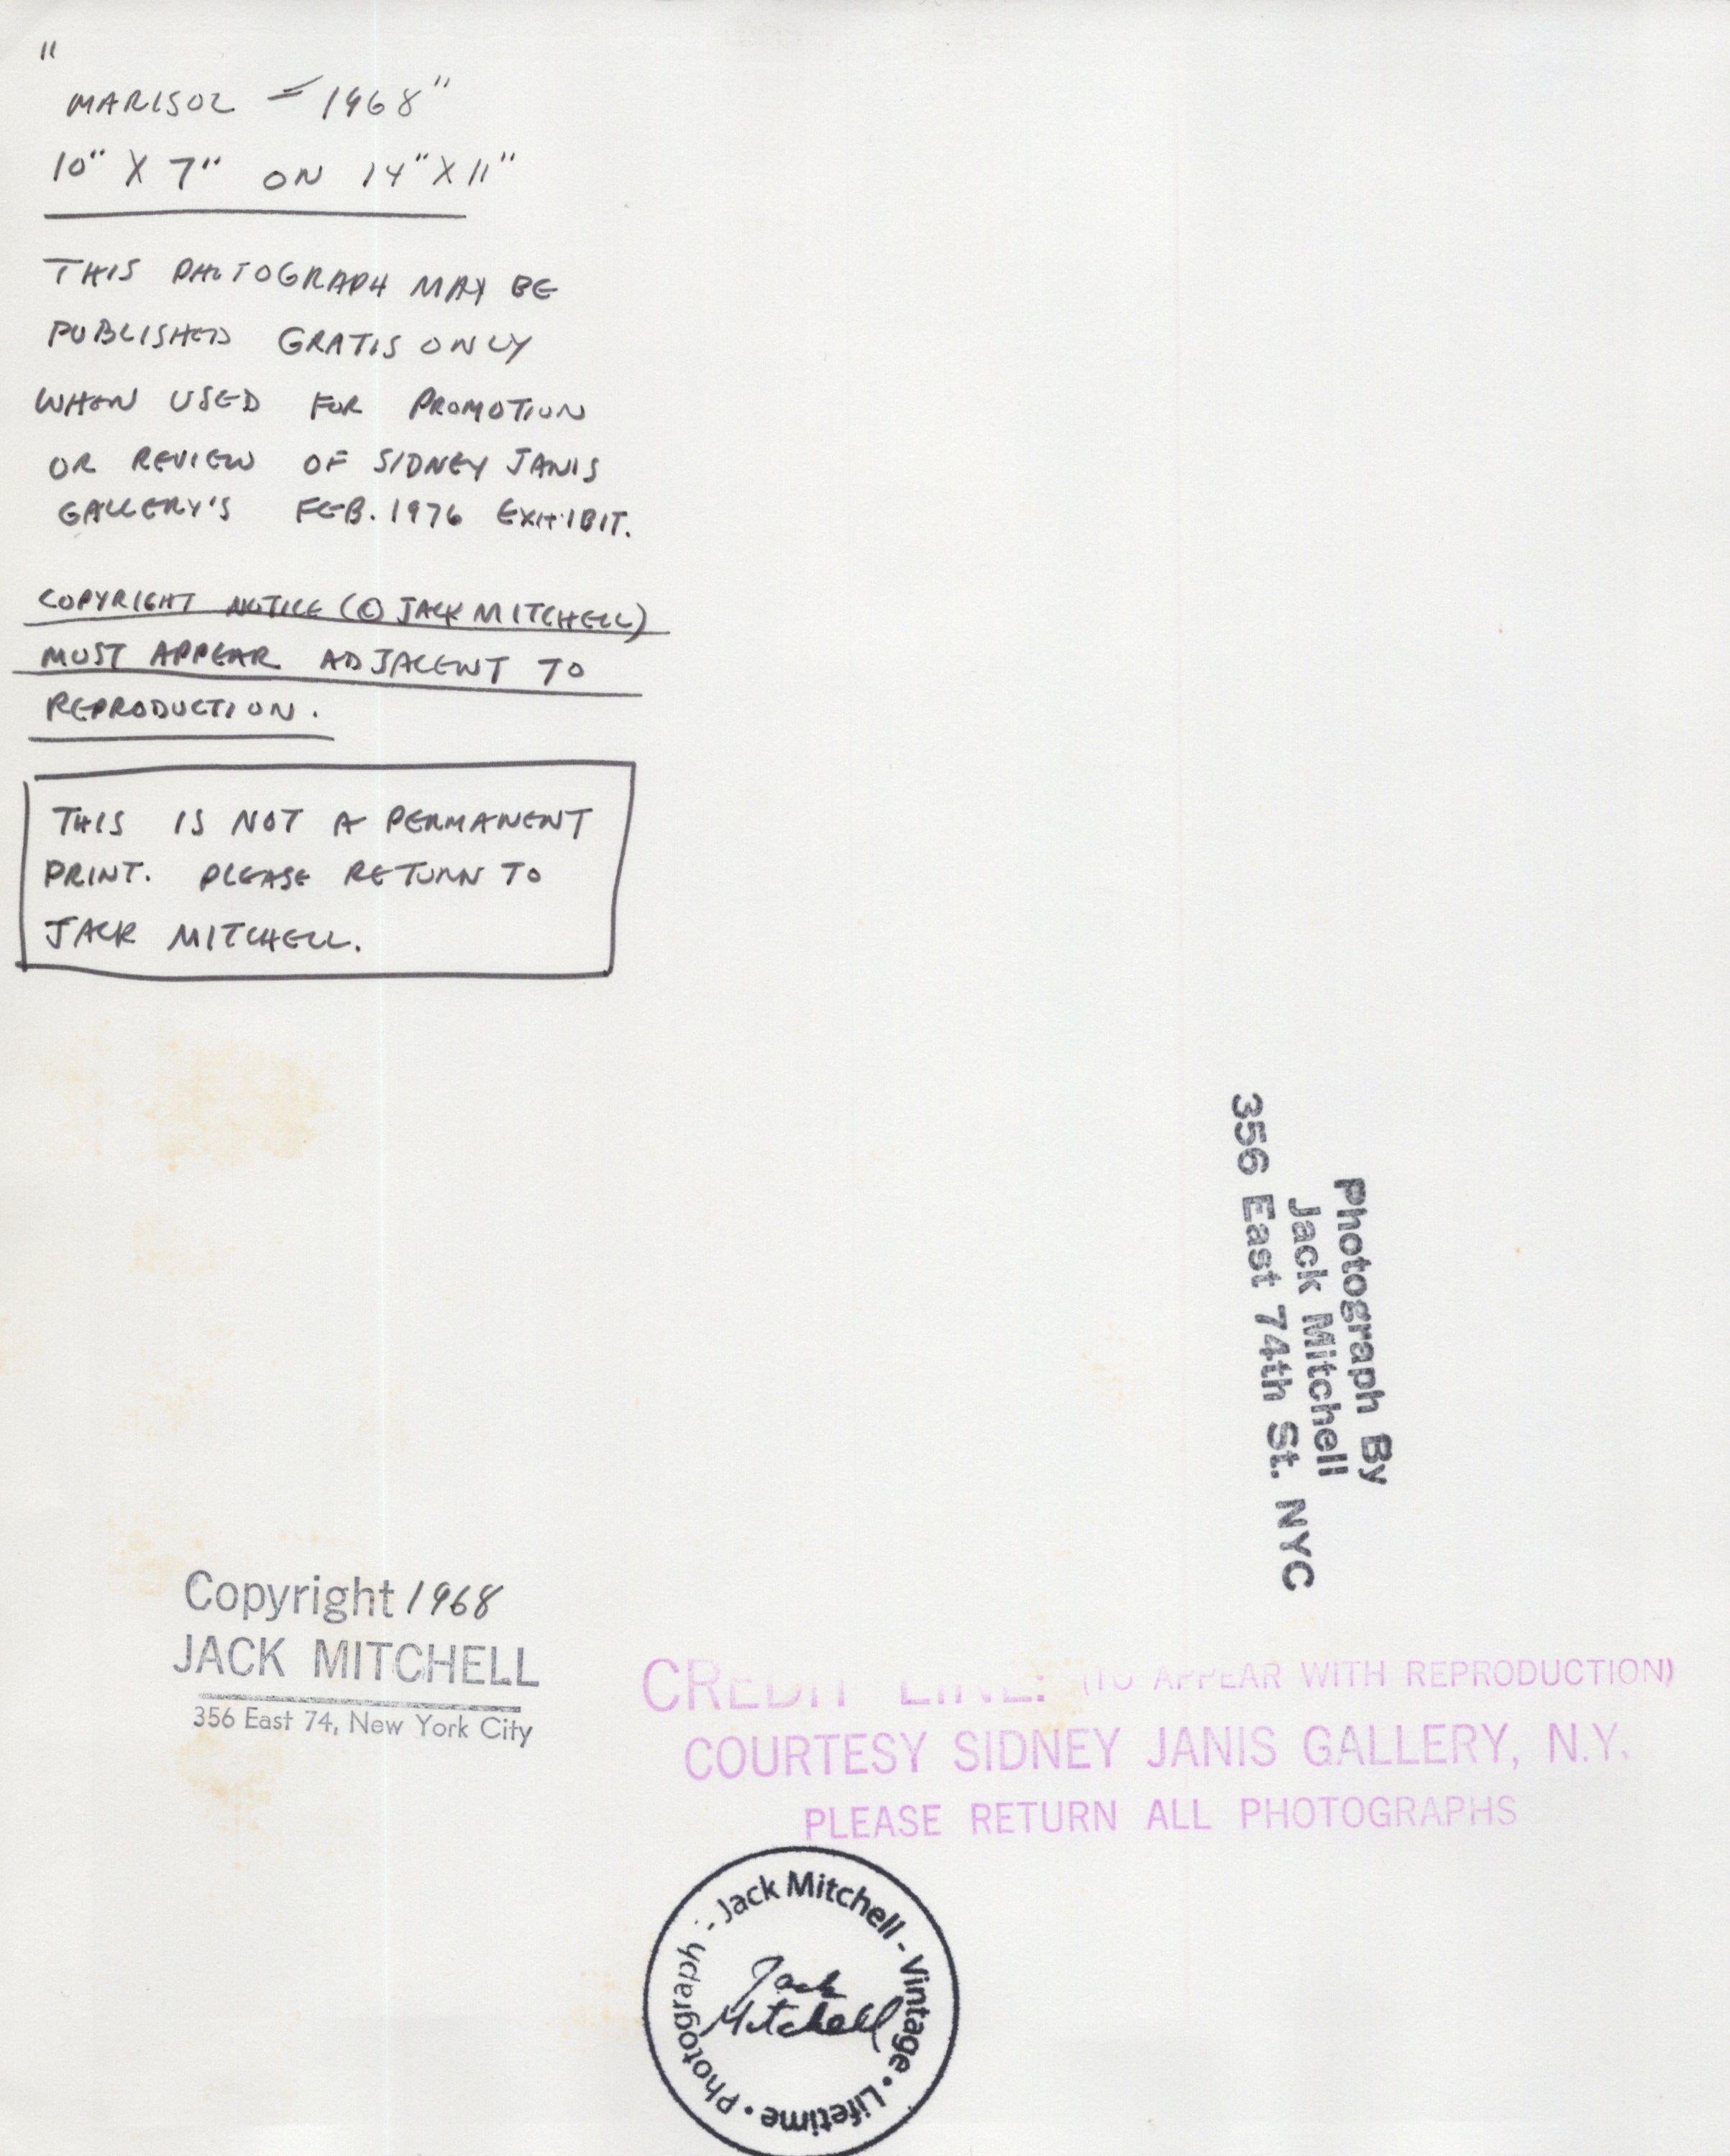 "
MARISOL = 1968"
10" X 7" ON 14" X 11"
THIS PHOTOGRAPH MAY BE
PUBLISHED GRATIS ONLY
WHEN USED FOR PROMOTION
OR REVIEW OF SIDNEY JANIS
GALLERY'S FEB. 1976 EXHIBIT.
COPYRIGHT NOTICE (© JACK MITCHELL)
MUST APPEAR ADJACENT TO
REPRODUCTION.
THIS IS NOT A PERMANENT
PRINT. PLEASE RETURN TO
JACK MITCHELL.
Photograph By
Jack Mitchell
356 East 74th St. NYC
Copyright 1968
JACK MITCHELL
356 East 74, New York City
CREDIT LINE: (TO APPEAR WITH REPRODUCTION)
COURTESY SIDNEY JANIS GALLERY, N.Y.
PLEASE RETURN ALL PHOTOGRAPHS
- Jack Mitchell - Vintage • Lifetime • Photograph
Jack
Mitchell